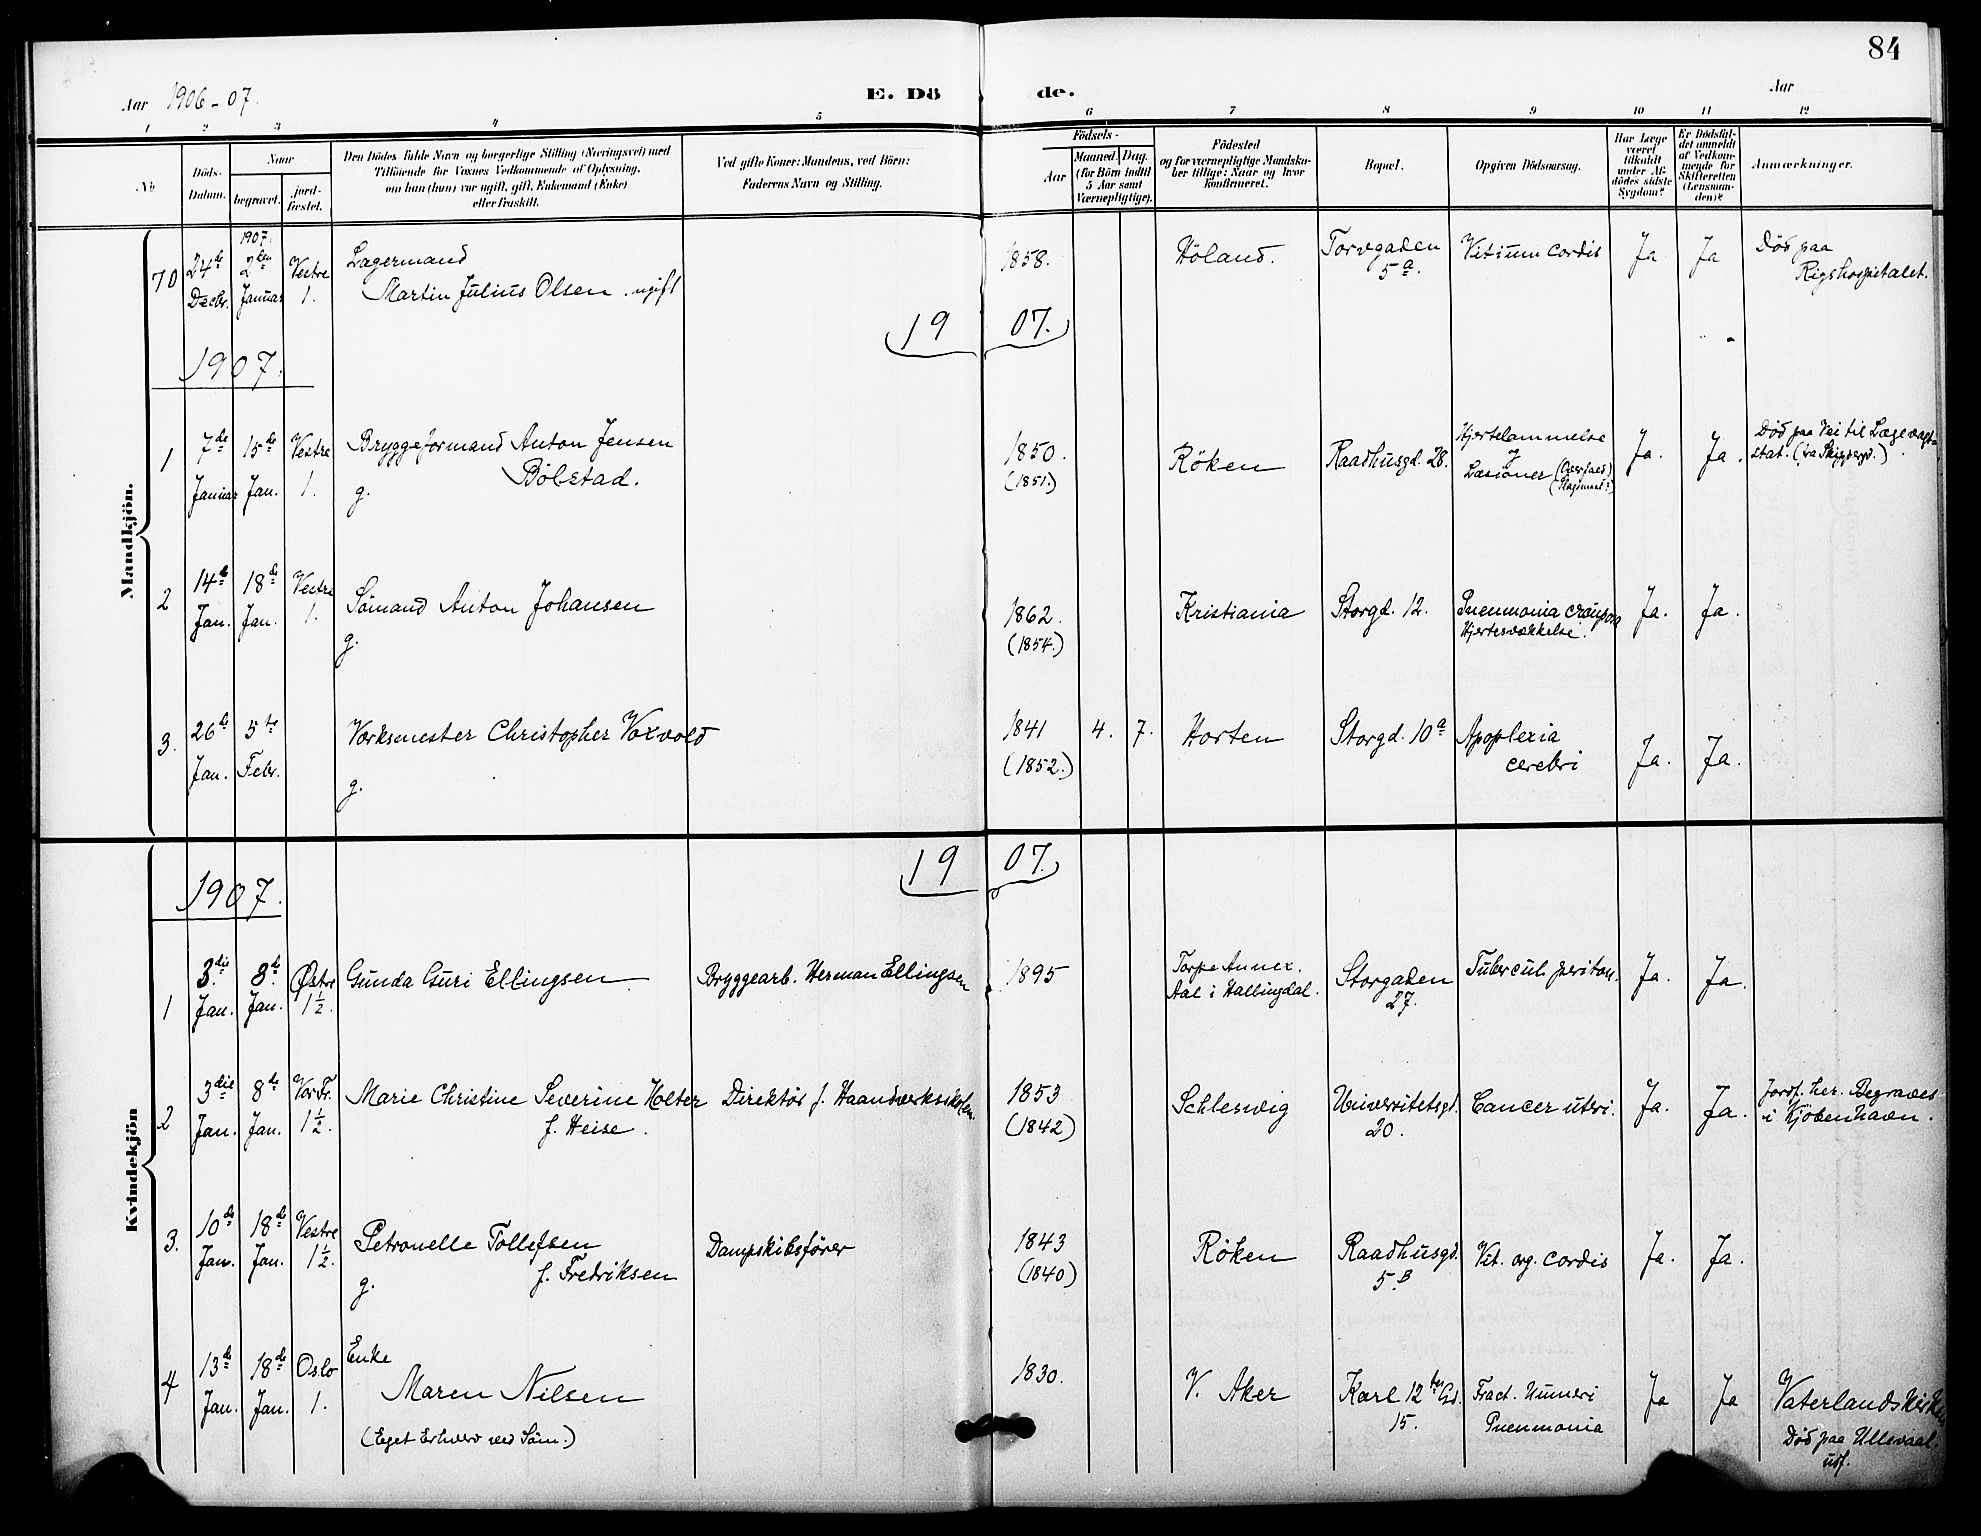 84
Aar 1906-07.
E. Dö de.
Aar
1 2 3 4 5 6 7 8 9 10 11 12
No
Döds-
Datum.
Naar
begravet.
jord-
fæstet.
Den Dödes fulde Navn og borgerlige Stilling (Næringsvei) med
Tilföiende for Voxnes Vedkommende af Oplysning,
om han (hun) var ugift, gift, Enkemand (Enke)
eller fraskilt.
Ved gifte Koner: Mandens, ved Börn:
Faderens Navn og Stilling.
Födsels-
Aar
Maaned. Dag.
(for Börn indtil
5 Aar samt
Værnepligtige).
Födested
og for værnepligtige Mandsku-
ber tillige: Naar og hvor
konfirmeret.
Bopæl.
Opgiven Dödsaarsag.
Har Læge
været
tilkaldt
under Af-
dödes sidste
Sygdom?
Er Dödsfal-
det anmeldt
af Vedkom-
mende for
Skifteretten
(Lensman-
den)?
Anmærkninger.
Mandkjön.
70
24de
Decbr.
1907.
2den
Januar
Vestre
1.
Lagermand
Martin Julius Olsen. ugift
1858.
Höland.
Torvgaden
5a.
Vitium cordis
Ja
Ja
Död paa
Rigshospitalet.
19 07.
1907.
1
7de
Januar
15de
Jan.
Vestre
1.
Bryggeformand Anton Jensen
Bölstad.
g.
1850.
(1851.)
Röken
Raadhusgd. 28.
Hjertelammelse
og
Læsioner (Overfald)
Ja.
Ja.
Död paa Vei til Lægevagt-
stat.
2
14de
Jan.
18de
Jan.
Vestre
1.
Sömand Anton Johansen
g.
1862.
(1854.)
Kristiania
Storgd. 12.
Pneumonia crouposa
Hjertesvækkelse.
Ja.
Ja.
3.
26de
Jan.
5te
Febr.
Værksmester Christopher Voxvold
g.
1841
(1852.)
4. 7.
Horten
Storgd. 10a
Apoplexia
cerebri
Ja.
Ja.
Kvindekjön
19 07.
1907.
1
3die
Jan.
8de
Jan.
Østre
1½.
Gunda Guri Ellingsen
Bryggearb. Herman Ellingsen
1895
Torpe Annex.
Aal i Hallingdal.
Storgaden
27.
Tubercul. periton.
Ja.
Ja.
2
3die
Jan.
8de
Jan.
Vor Fr.
1½.
Marie Christine Severine Holter
f. Heise.
Direktör f. Haandværksskolen.
1853
(1842)
Schleswig
Universitetsgd.
20.
Cancer uteri.
Ja.
Ja.
Jordf. her. Begraves
i Kjöbenhavn.
3.
10de
Jan.
18de
Jan.
Vestre
1½.
Petronelle Tollefsen
f. Fredriksen
g.
Dampskibsförer
1843
(1840)
Röken
Raadhusgd.
5B
Vit. org. cordis
Ja.
Ja.
4
13de
Jan.
18de
Jan.
Oslo
1.
Enke
Maren Nilsen
(Eget Erhverv ved Söm.)
1830.
V. Aker
Karl 12tes Gd.
15.
Fract. Humeri
Pneumonia
Ja
Ja
Vaterlands Kirken
Död paa Ullevaal.
udf.